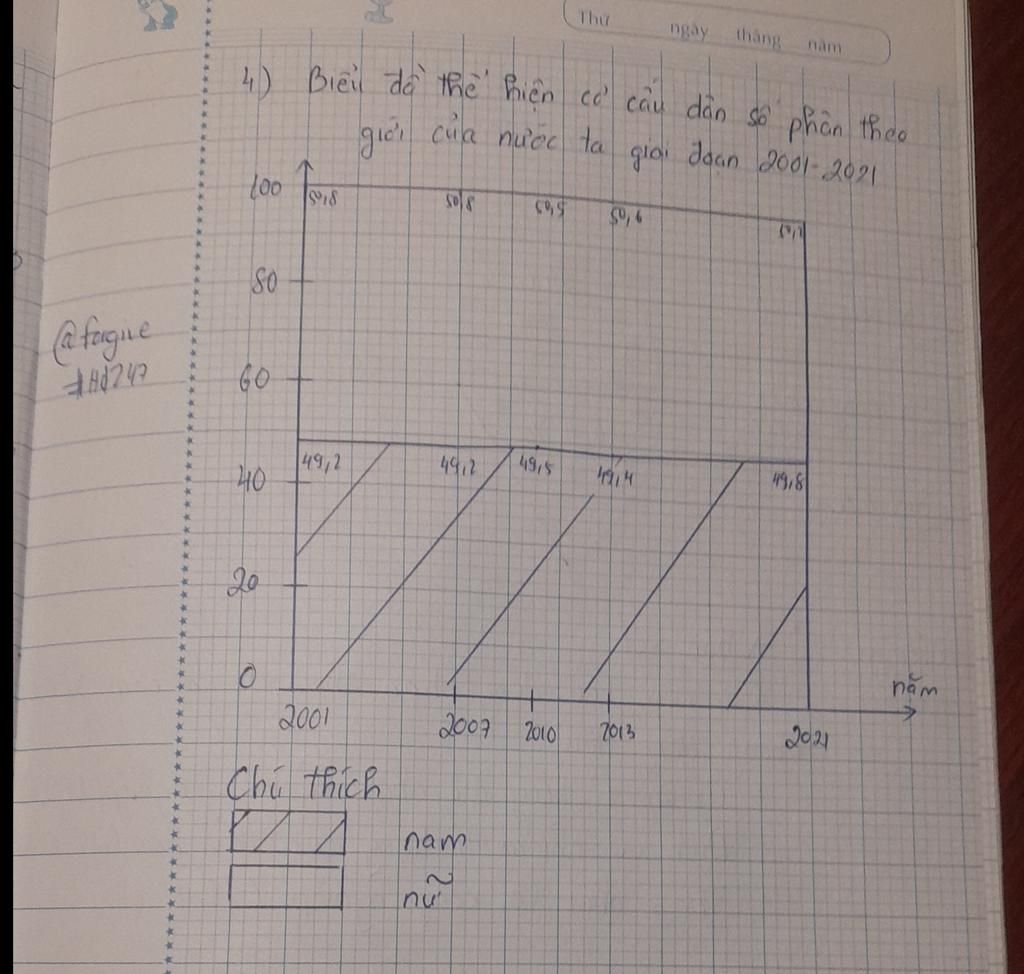 Thứ ngày tháng năm
4) Biểu đồ thể hiện cơ cấu dân số phân theo
giới của nước ta giai đoạn 2001-2021
100
50,8 50,8 50,5 50,6
80
60
49,2 49,2 49,5 49,4 49,8
40
20
0
năm
2001 2007 2010 2013 2021
Chú thích
nam
nữ